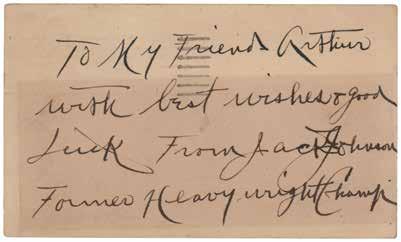 To My Friend Arthur
with best wishes & good
Luck From Jack Johnson
Former Heavy wright Champ